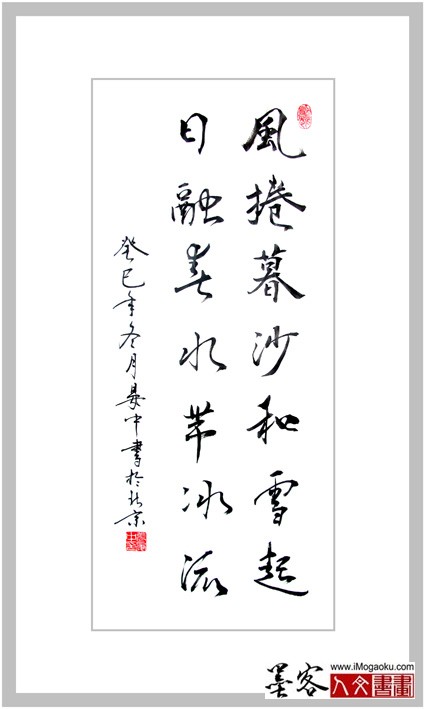 風捲暮沙和雪起
日融春水带冰流
癸巳年冬月晏中書於北京
墨客
www.iMogaoku.com
人文書畫